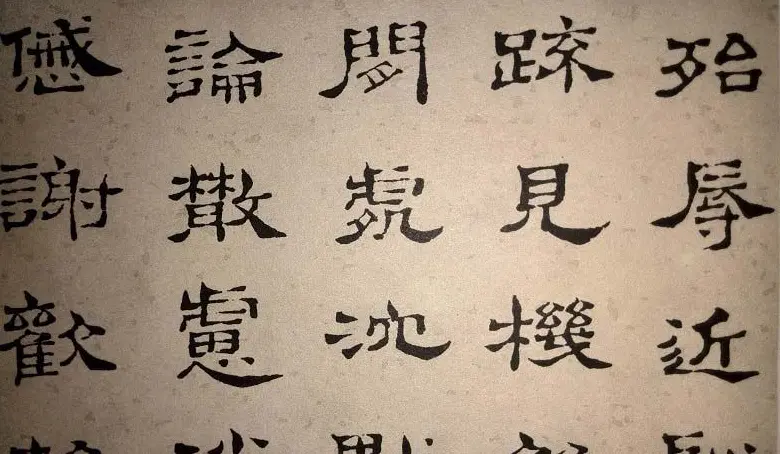 殆辱近
疏見機
閒處沈
論散慮
慼謝歡